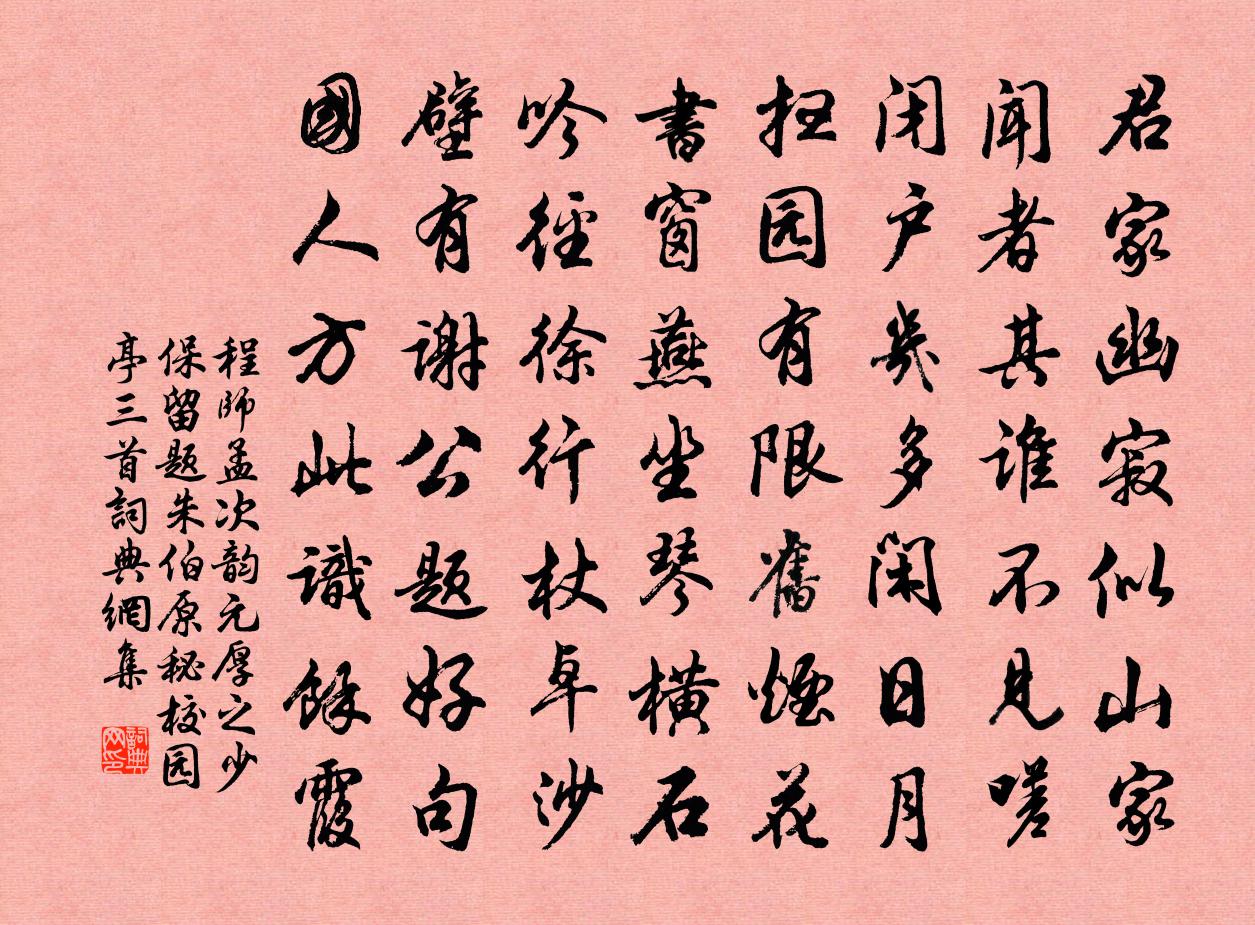 君家幽寂似山家
闻者其谁不见嗟
闭户几多闲日月
扫园有限旧烟花
書窗燕坐琴横石
吟徑徐行杖卓沙
壁有谢公题好句
國人方此識餘霞
程師孟次韵元厚之少
保留题朱伯原秘校园
亭三首詞典網集
詞典网印